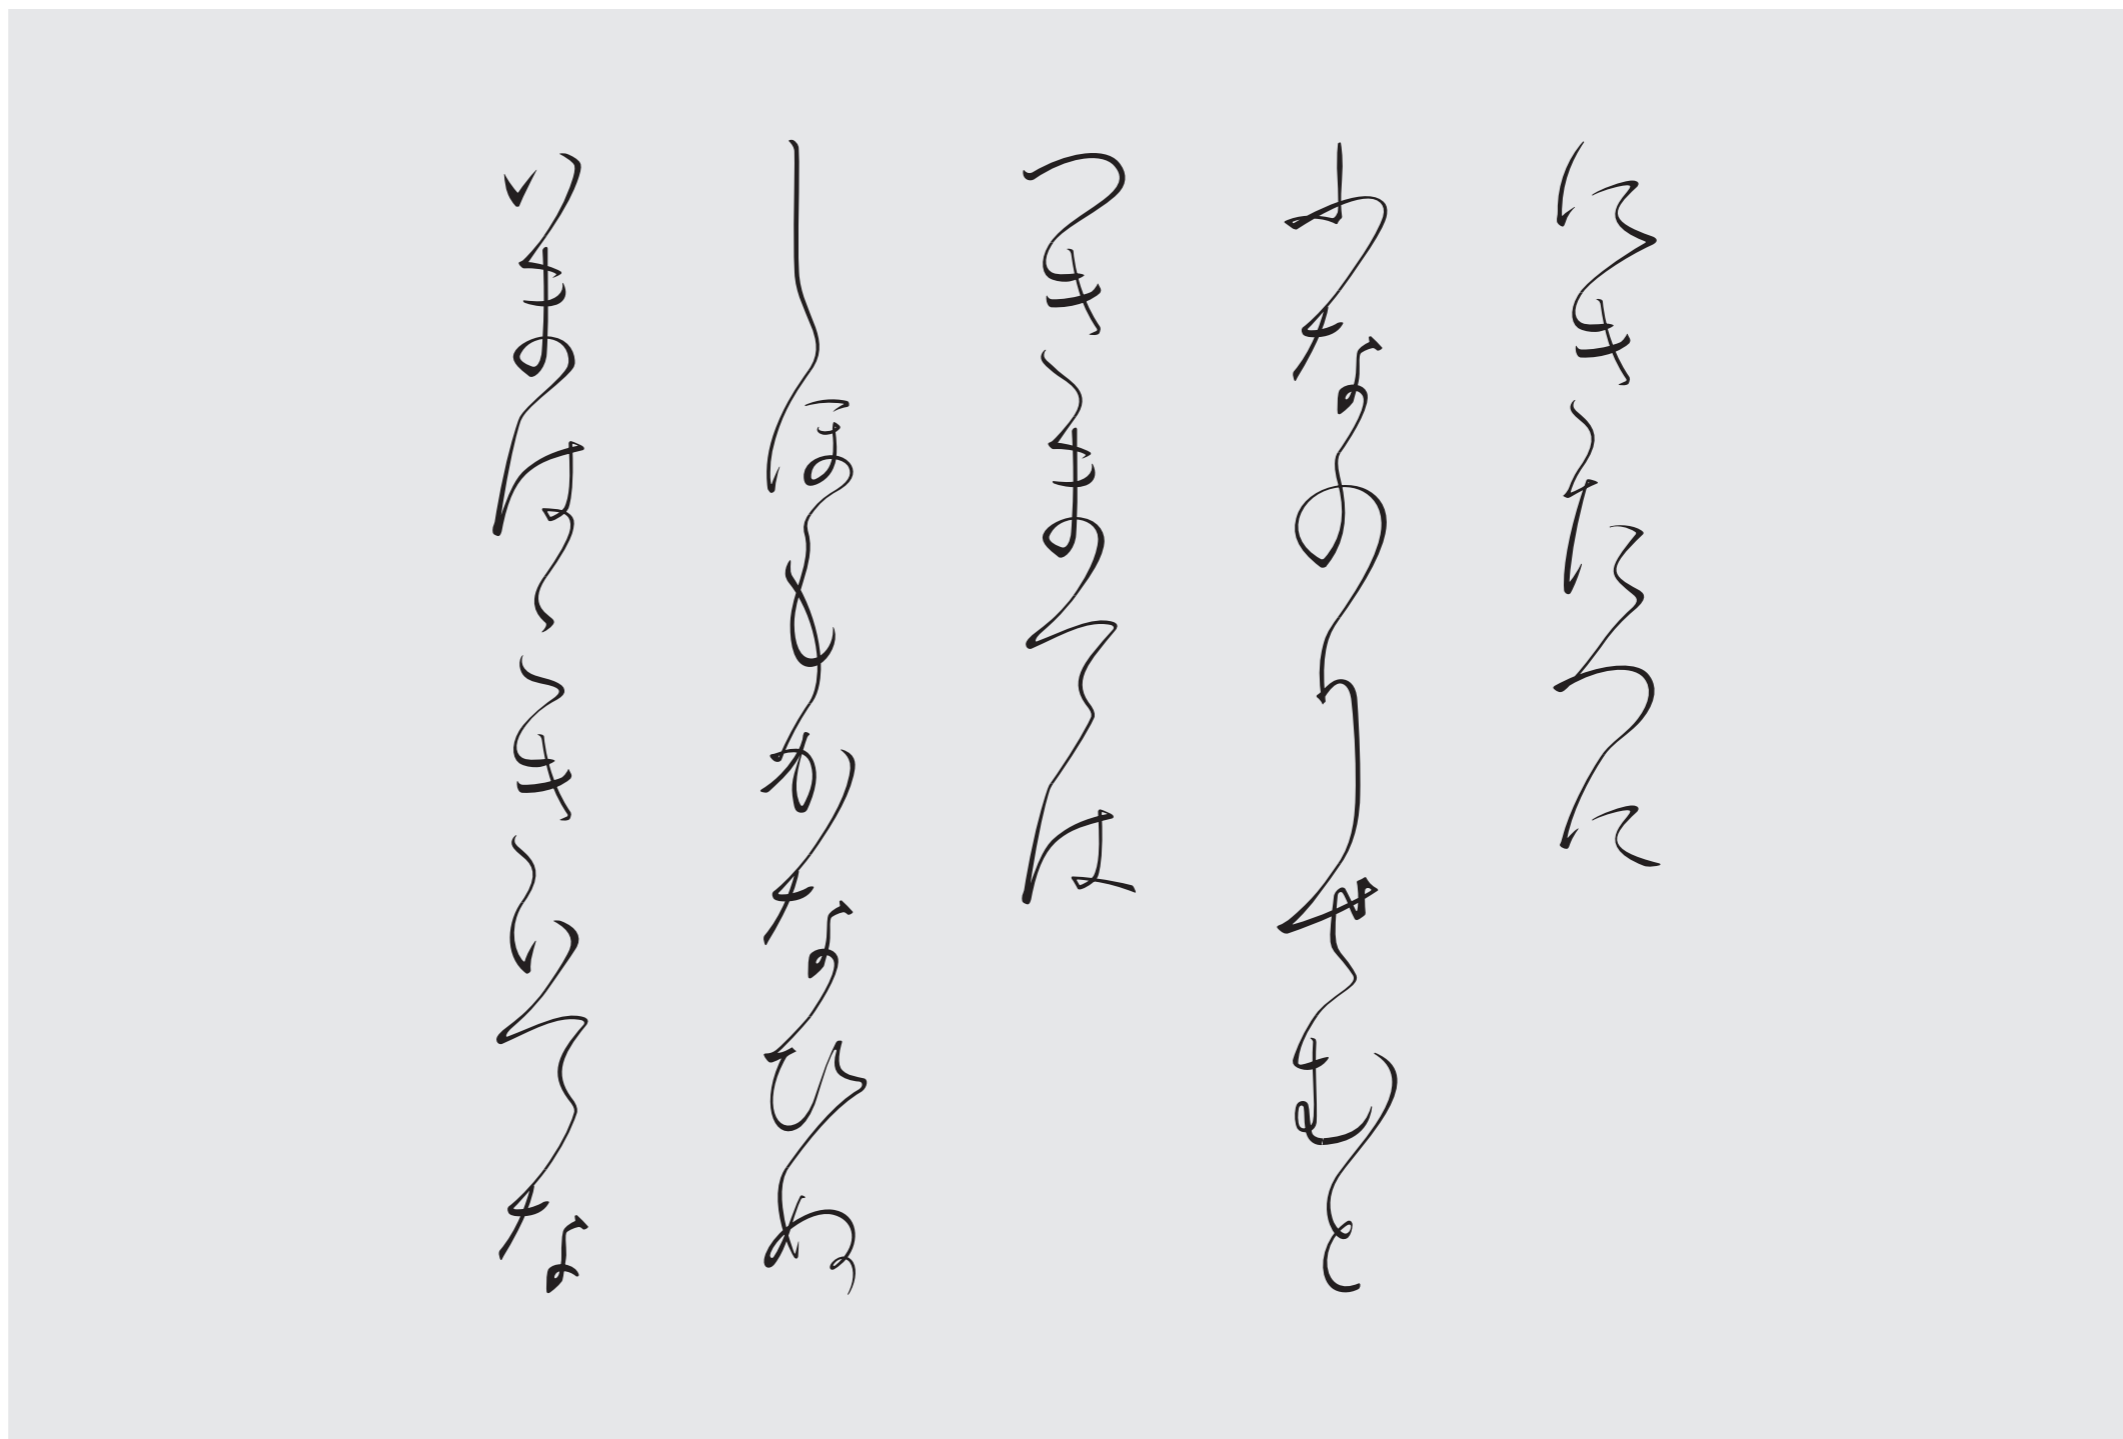 にきたつに
ふなのりせむと
つきまては
しほもかなひぬ
いまはこきいてな